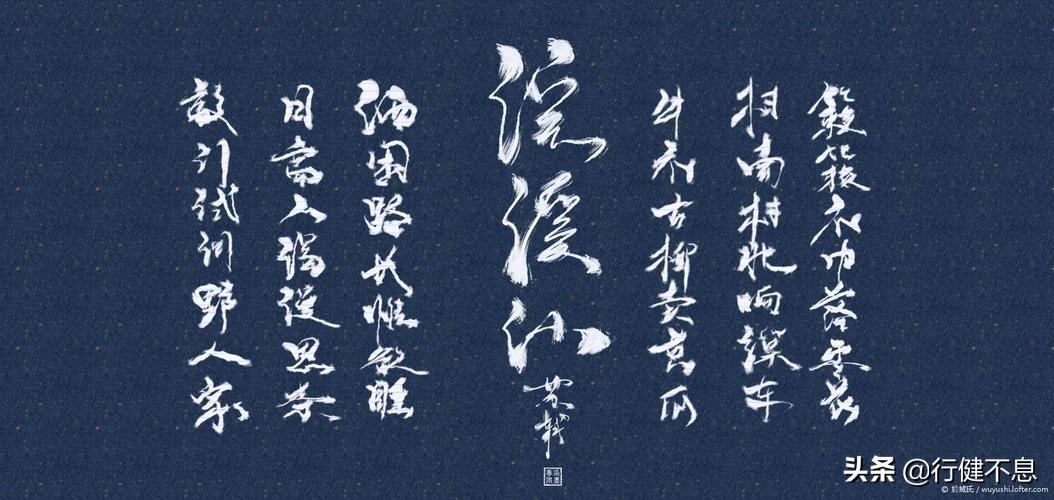 簌簌衣巾落枣花
村南村北响缲车
牛衣古柳卖黄瓜
浣溪沙
苏轼
酒困路长惟欲睡
日高人渴漫思茶
敲门试问野人家
头条 @行健不息
© 於域氏 / wuyushi.lofter.com